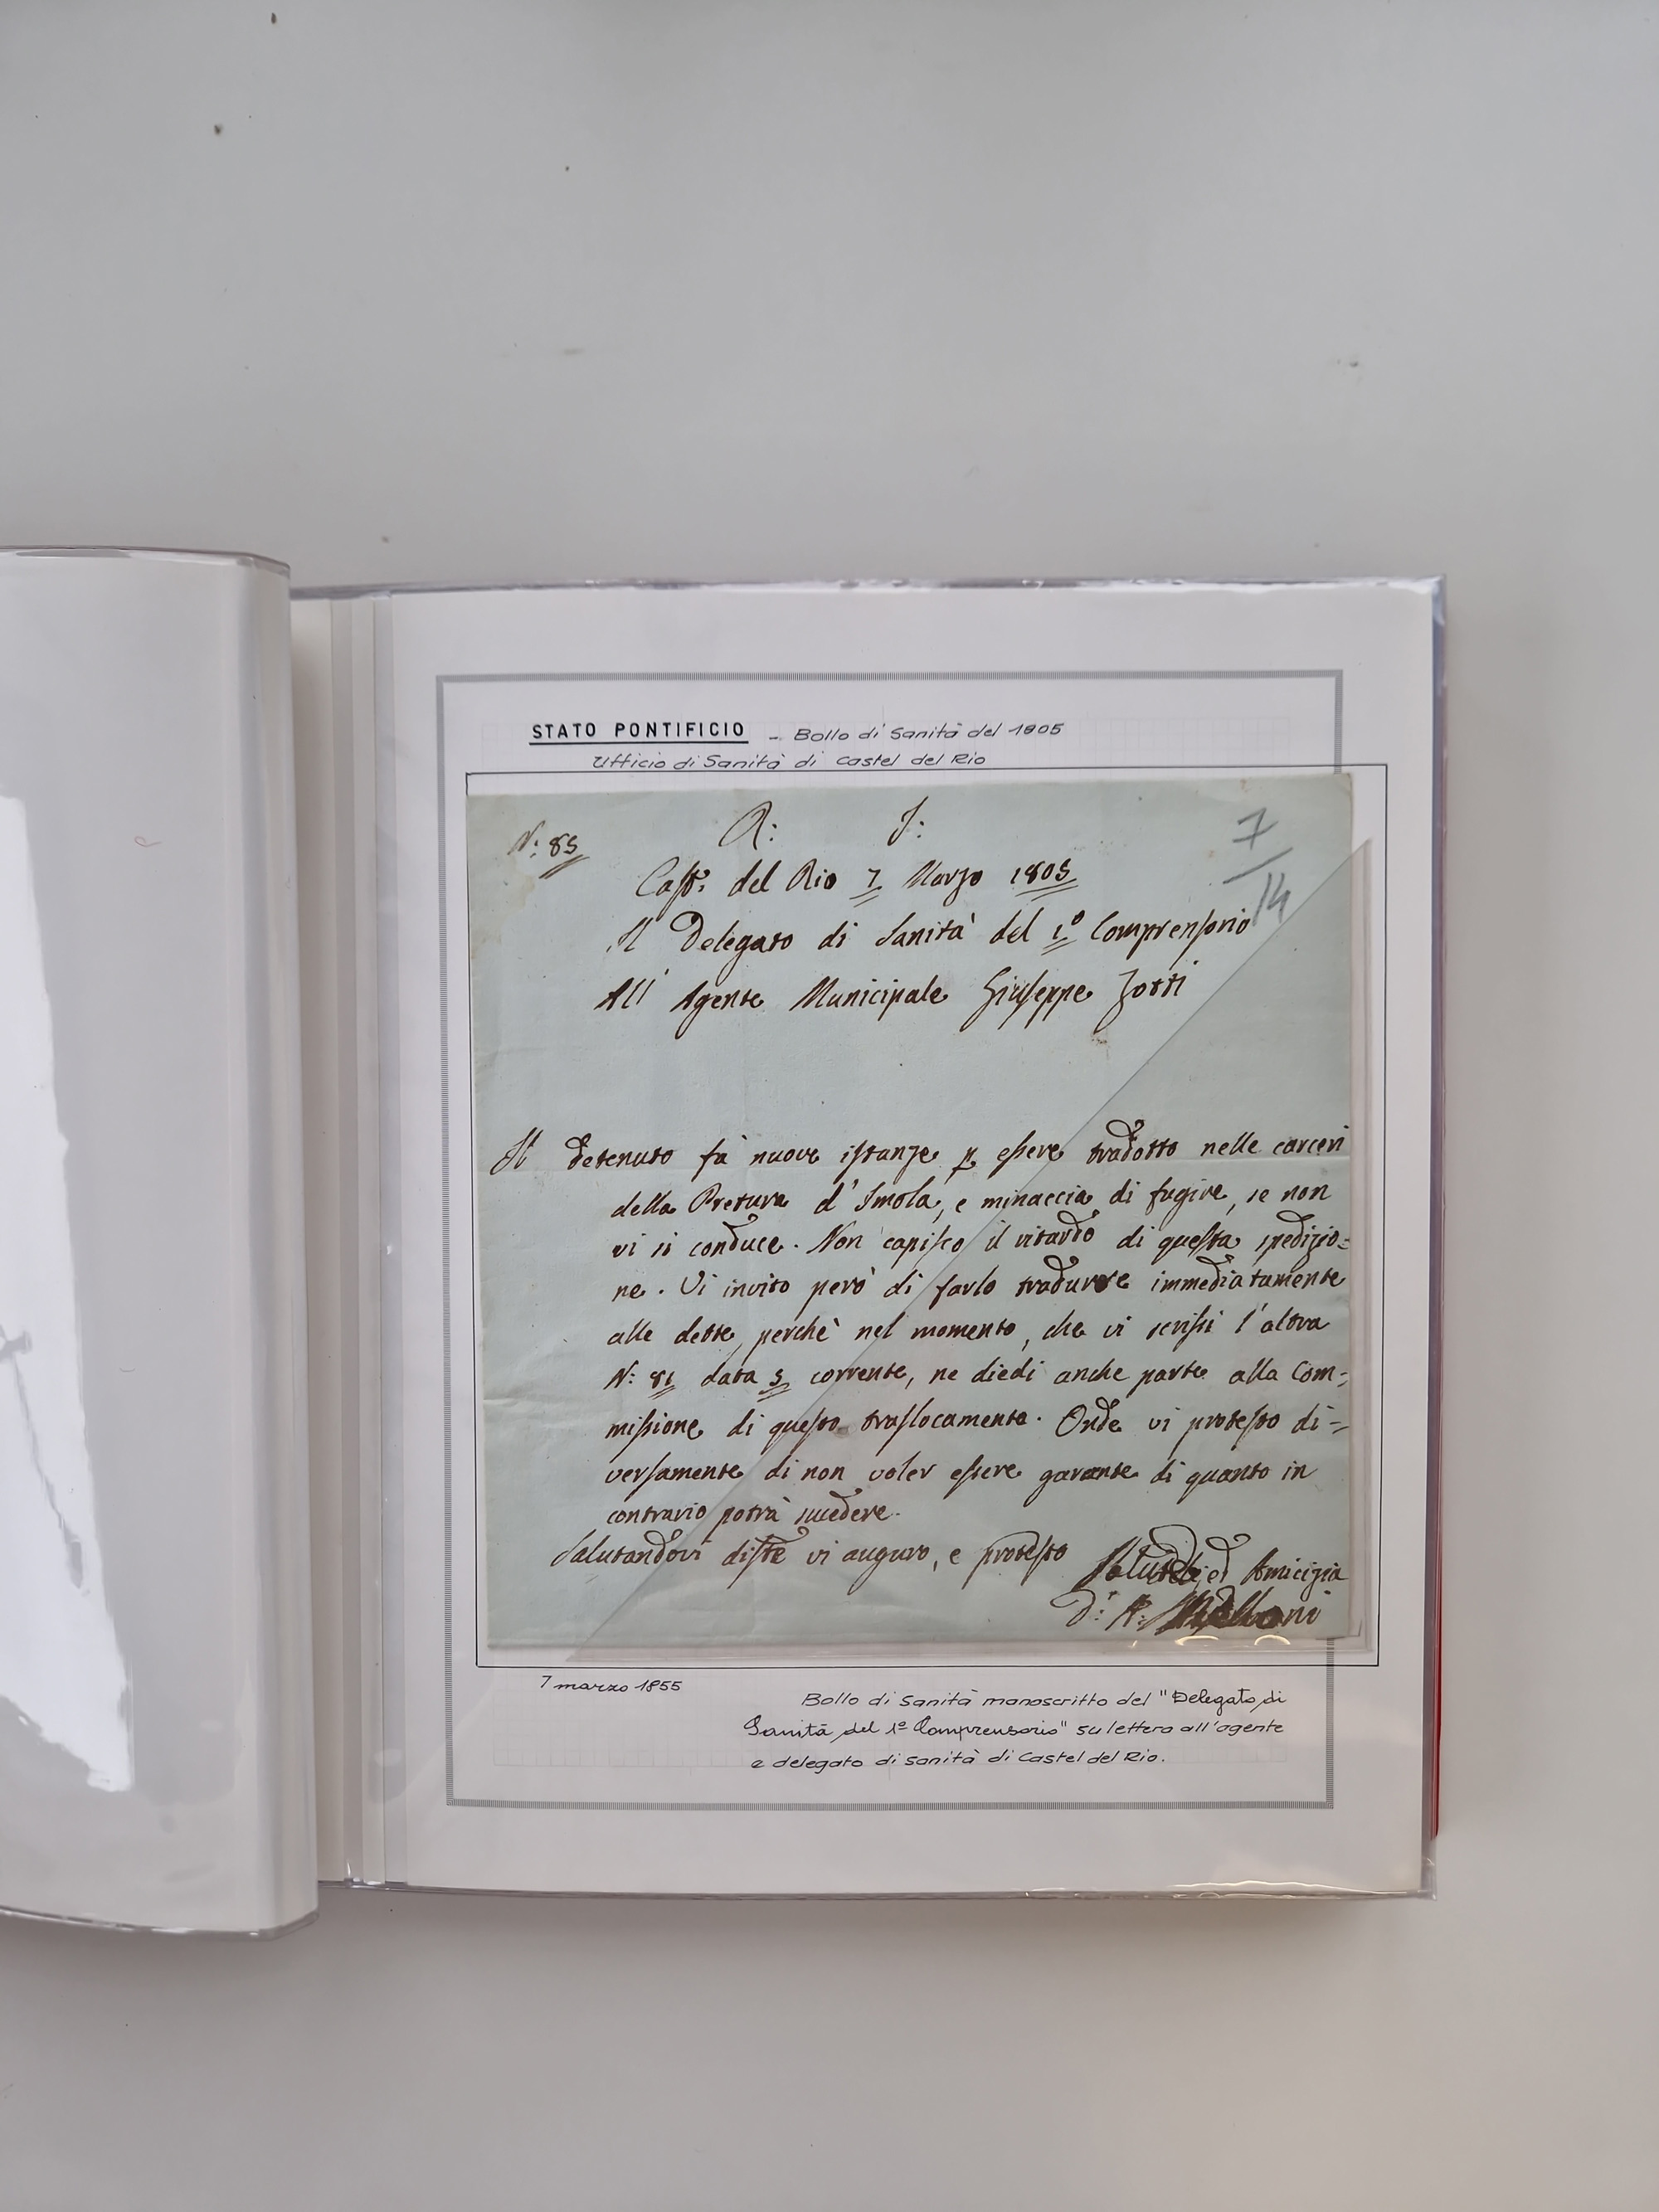 STATO PONTIFICIO - Bollo di Sanità del 1805
Ufficio di Sanità di Castel del Rio
N: 85
R: I:
7
14
Cast: del Rio 7 Marzo 1805
Il Delegato di Sanità del 1º Comprensorio
All' Agente Municipale Giuseppe Zotti
Il detenuto fà nuove istanze p essere tradotto nelle carceri
della Pretura d'Imola, e minaccia di fugire, se non
vi si conduce. Non capisco il ritardo di questa spedizio=
ne. Vi invito però di farlo tradurre immediatamente
alle dette, perchè nel momento, che vi scrissi l'altra
N: 81 data 5 corrente, ne diedi anche parte alla Com=
missione di questo traslocamento. Onde vi protesto di=
versamente di non voler essere garante di quanto in
contrario potrà succedere.
Salutandovi diste vi auguro, e protesto Salute, ed Amicizia
D:r A:
7 marzo 1855
Bollo di Sanità manoscritto del "Delegato di
Sanità del 1º Comprensorio" su lettera all'agente
e delegato di Sanità di Castel del Rio.